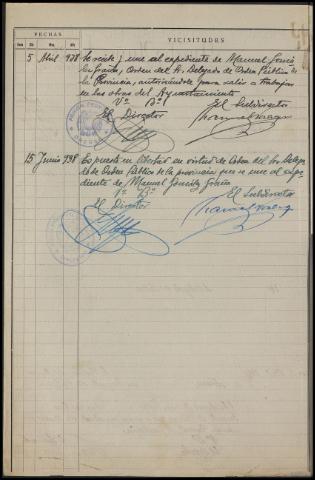 FECHAS
VICISITUDES
Día Mes Año
5 Abril 938 Se recibe y une al expediente de Manuel García
orden del Sr. Delegado de Orden Público de
la Provincia, autorizándole para salir a trabajar
en las obras del Ayuntamiento.
Vº Bº
El Subdirector
El Director
15 Junio 938 Es puesto en libertad en virtud de Orden del Sr. Delega
do de Orden Público de la provincia que se une al expe
diente de Manuel García
Vº Bº
El Subdirector
El Director